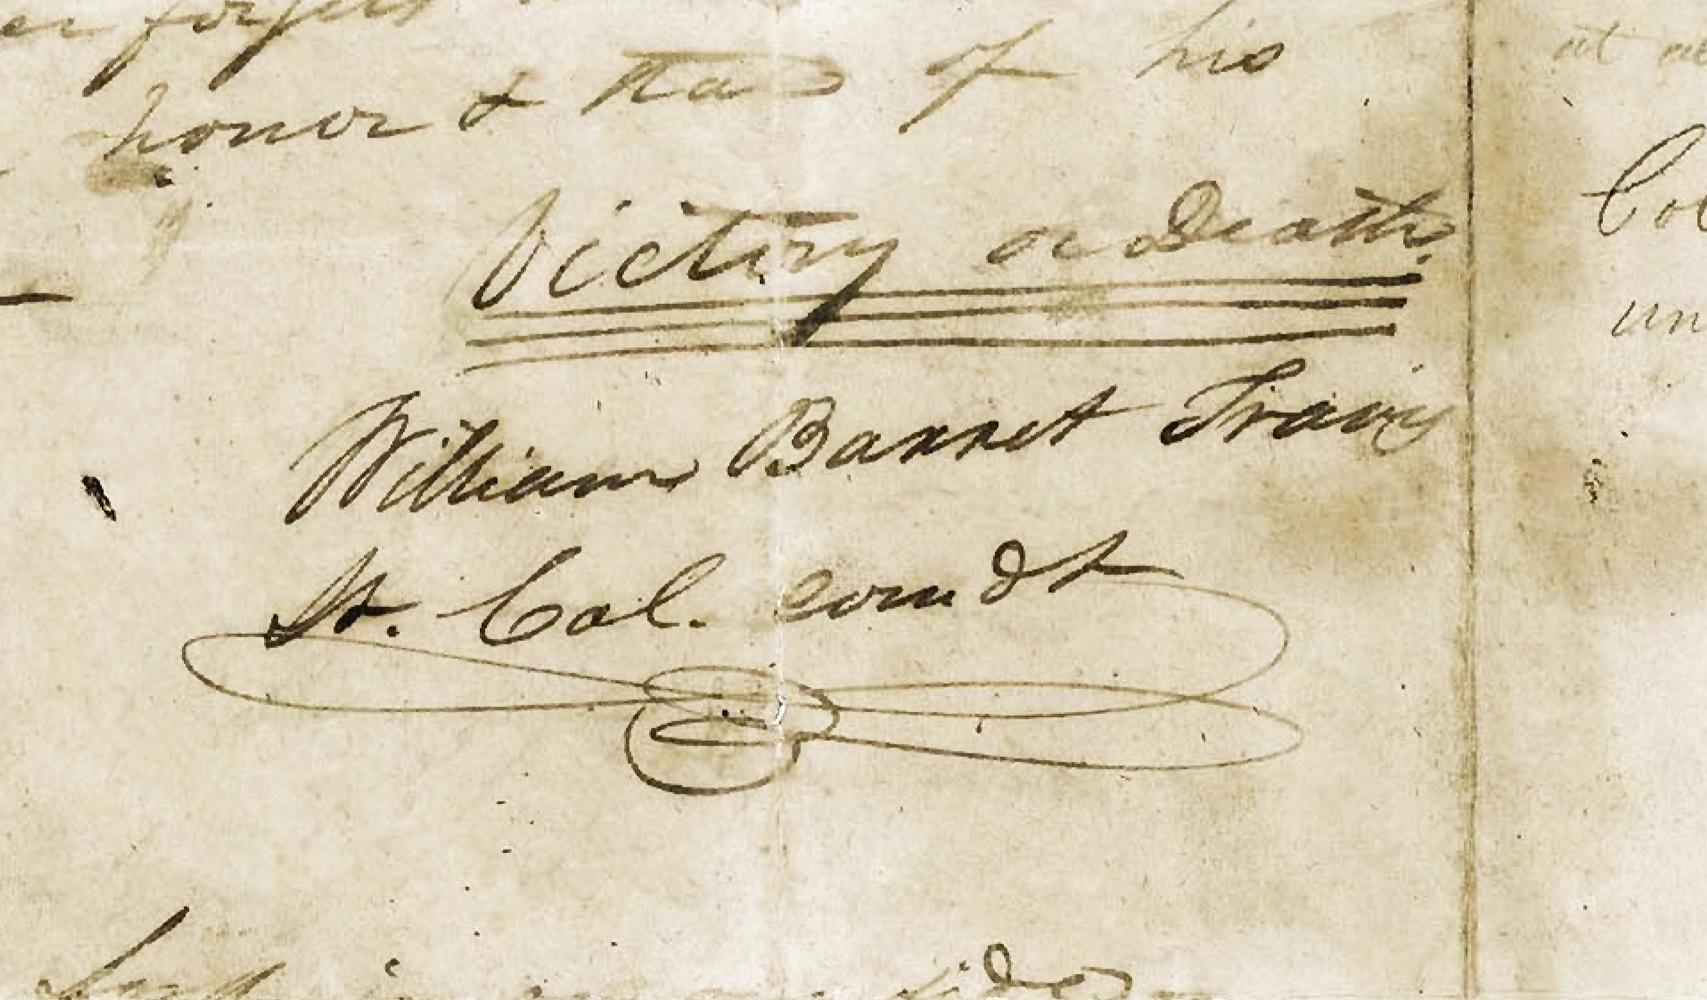 honor & that of his
Victory or Death.
William Barret Travis
Lt. Col. comdt
Col
un